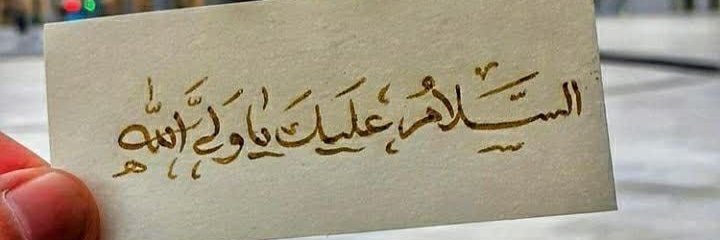 السَّلامُ عَلَيكَ يا وَليَّ اللهِ